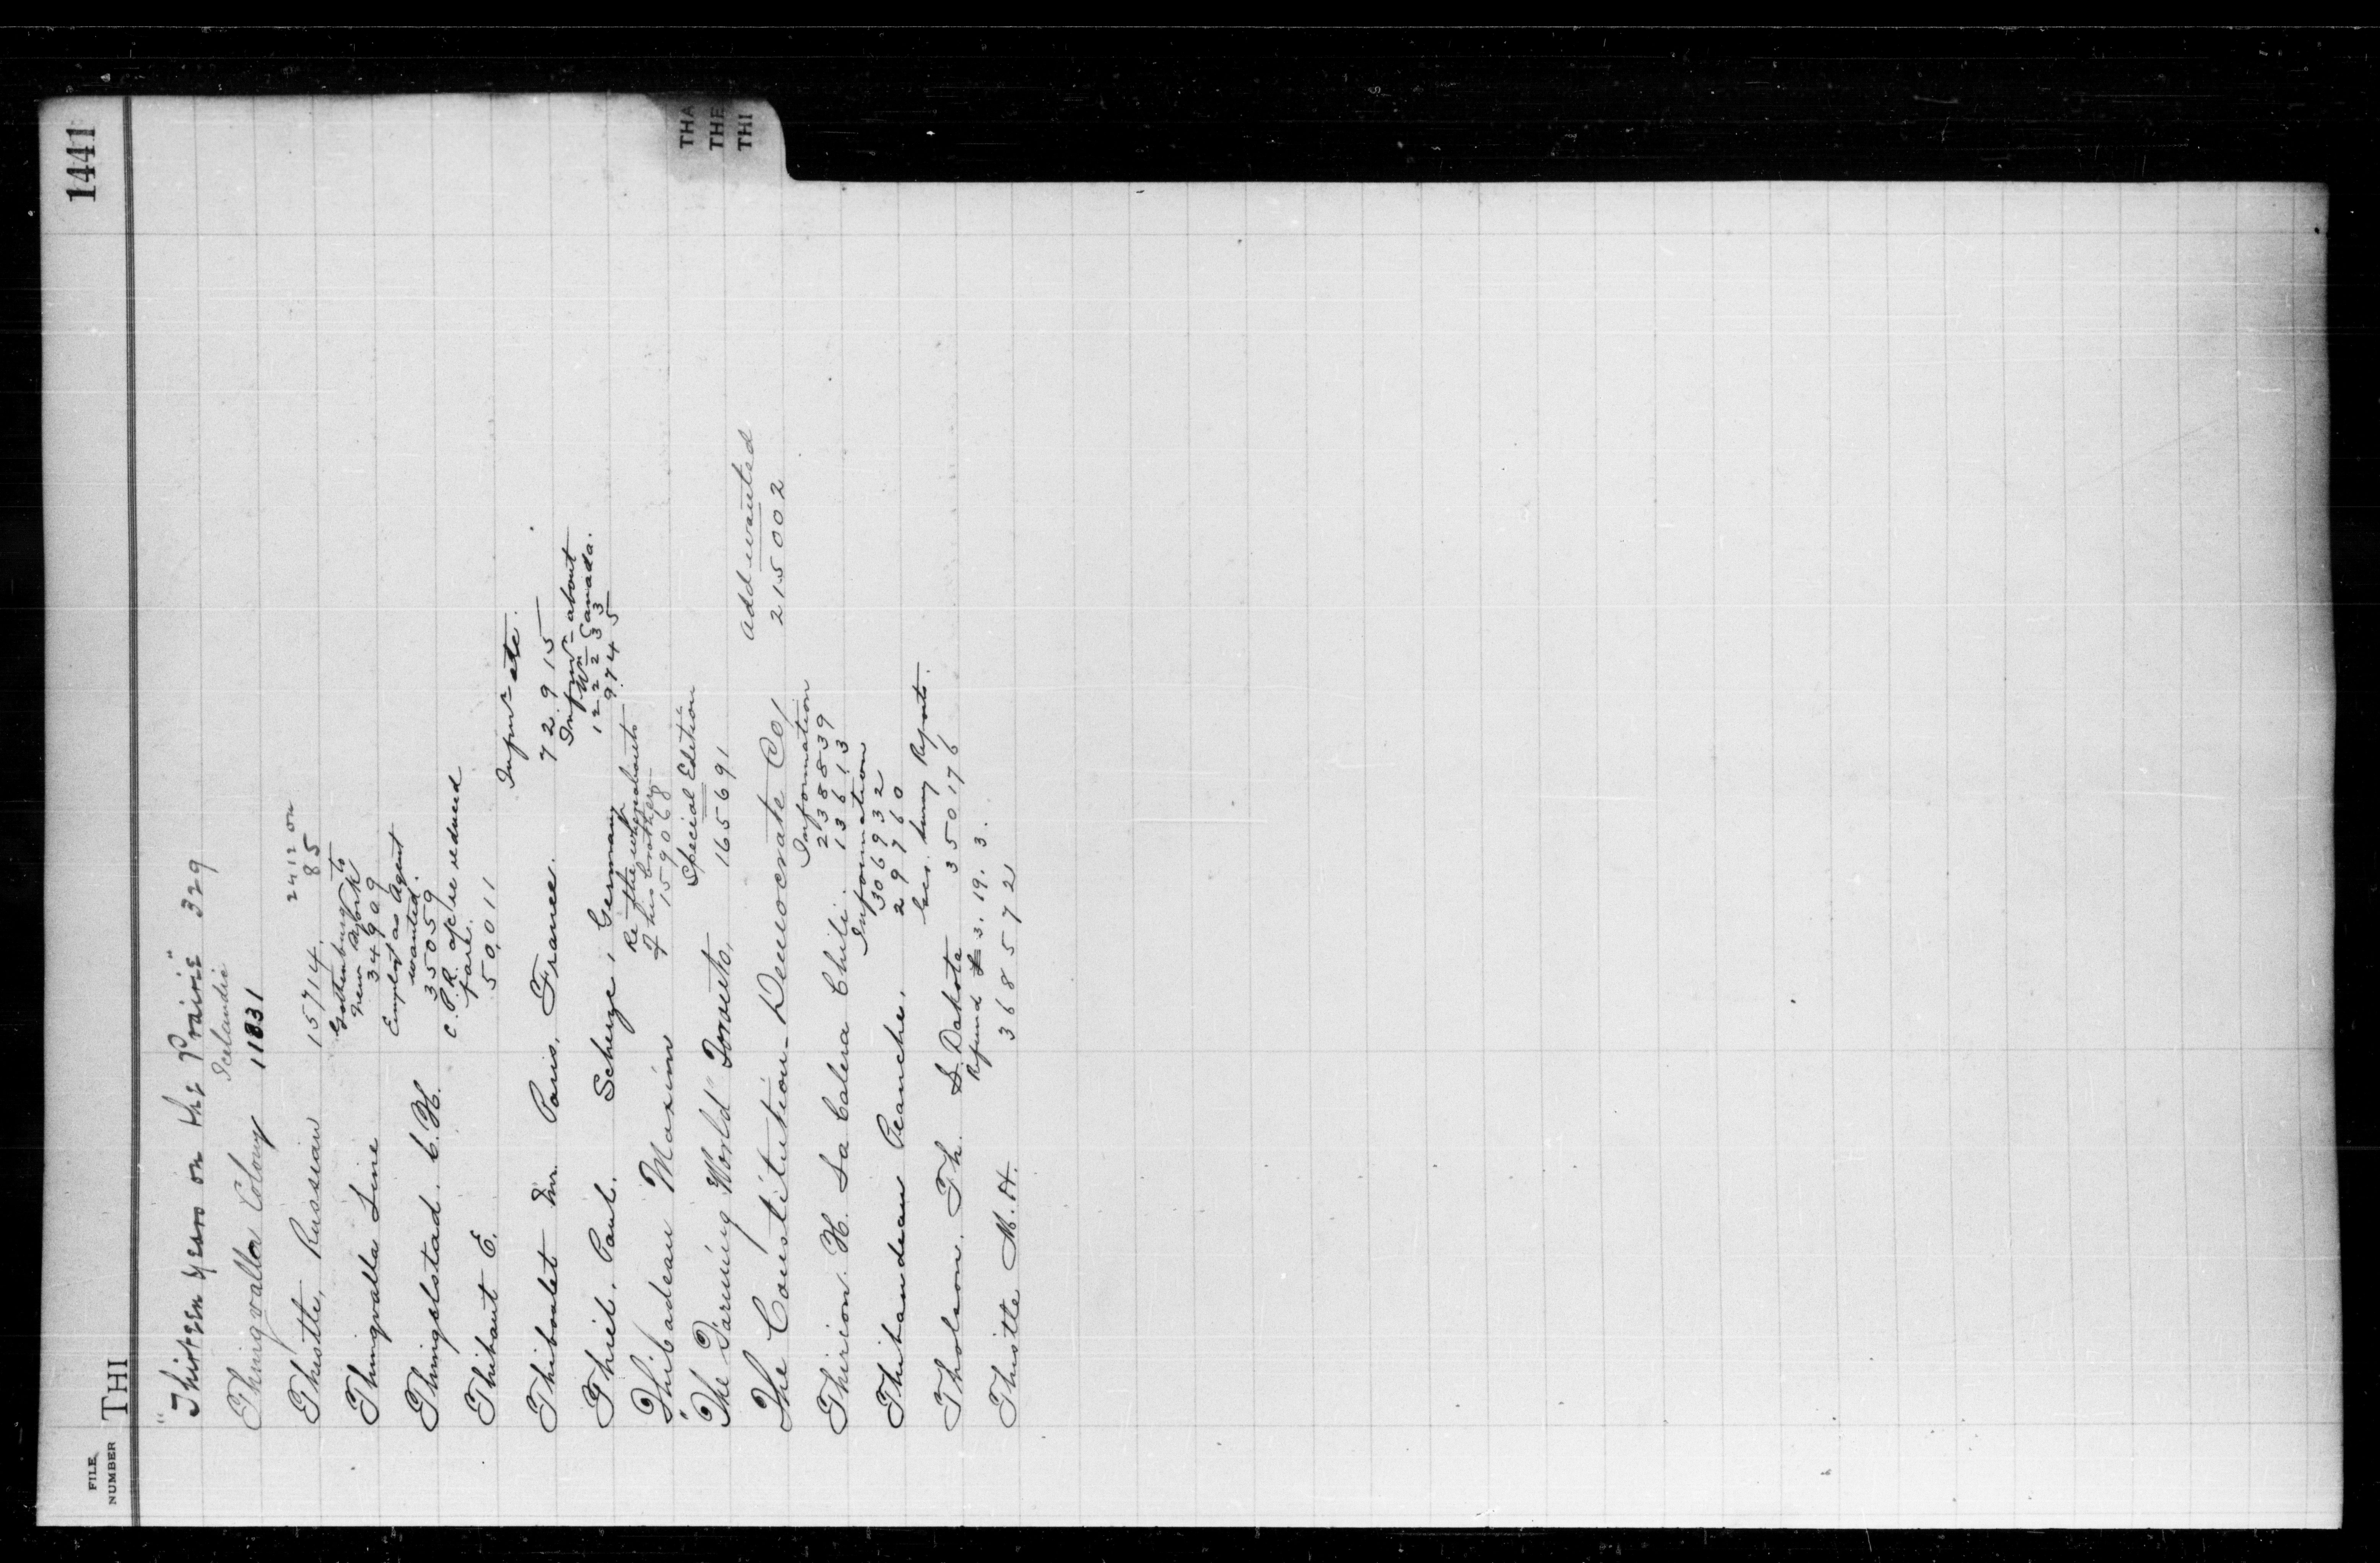 1441
FILE
NUMBER
THI
THA
THE
THI
"Thirteen years on the Prairie" 329
Icelandic
Thingvalla Colony 11831
24 12 on
Thistle, Russian 15714. 85
Gothenburg to
New York
Thingvalla Line 34909
Emplnt as Agent
wanted.
Thingelstad. C. H. 35059
C.P.R. of/re reduced
fare.
Thibaut E. 50,011
Infmn etc.
Thiboalet Mr. Paris, France. 72915
Infmn about
Wn Canada.
122233
Thiel, Paul. Scherze, Germany 9745
Re the whereabouts
of his brother
Thibadeau Maxim 159068
Special Edition
"The Farming World" Toronto, 165691
Add wanted
The Constitution-Democrate Co/ 215002
Information
238839
Thirion. H. La Calera Chili. 13613
Information
306932
Thithandeau Blanche. 29760
Ges. luny Reports.
Tholson. Th. S. Dakota 350176
Refund 3. 19. 3.
Thistle M. H. 368572